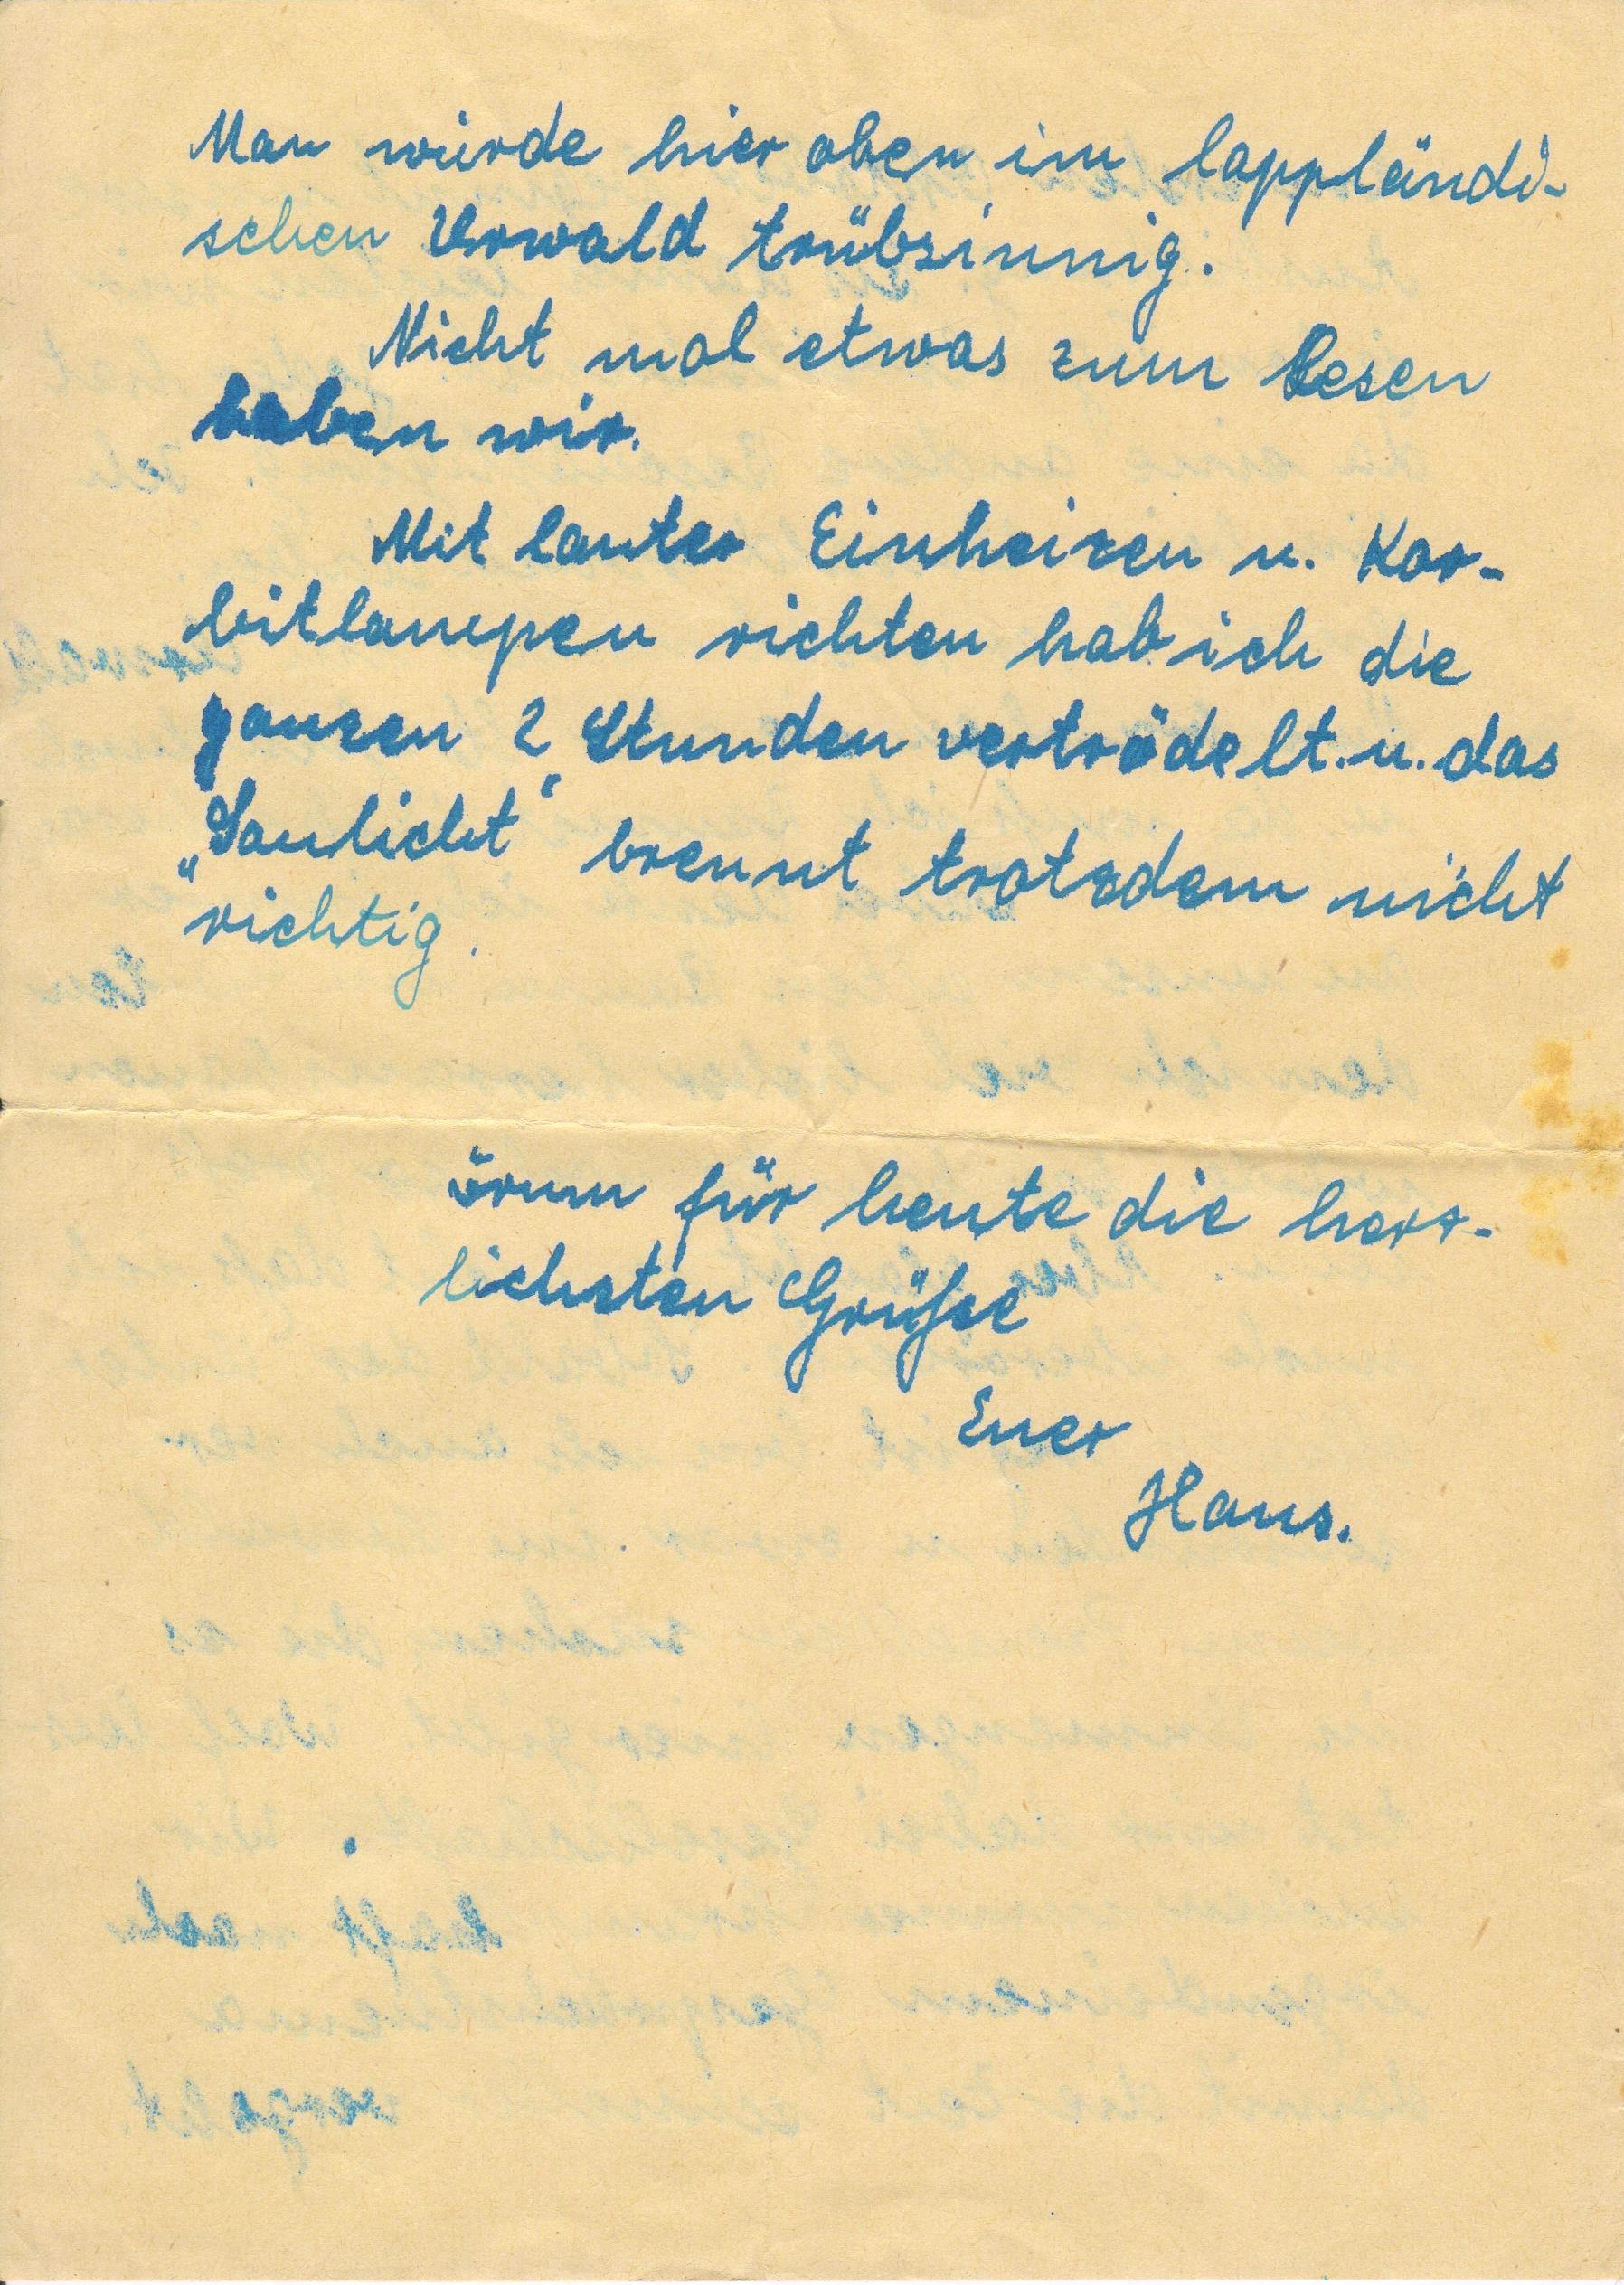 Man würde hier oben im lappländi-
schen Urwald trübsinnig.
Nicht mal etwas zum Lesen
haben wir.
Mit lauter Einheizen u. Kar-
bitlampen richten hab ich die
ganzen 2 Stunden vertrödelt u. das
„Saulicht“ brennt trotzdem nicht
richtig.
drum für heute die herz-
lichsten Grüße
Euer
Hans.